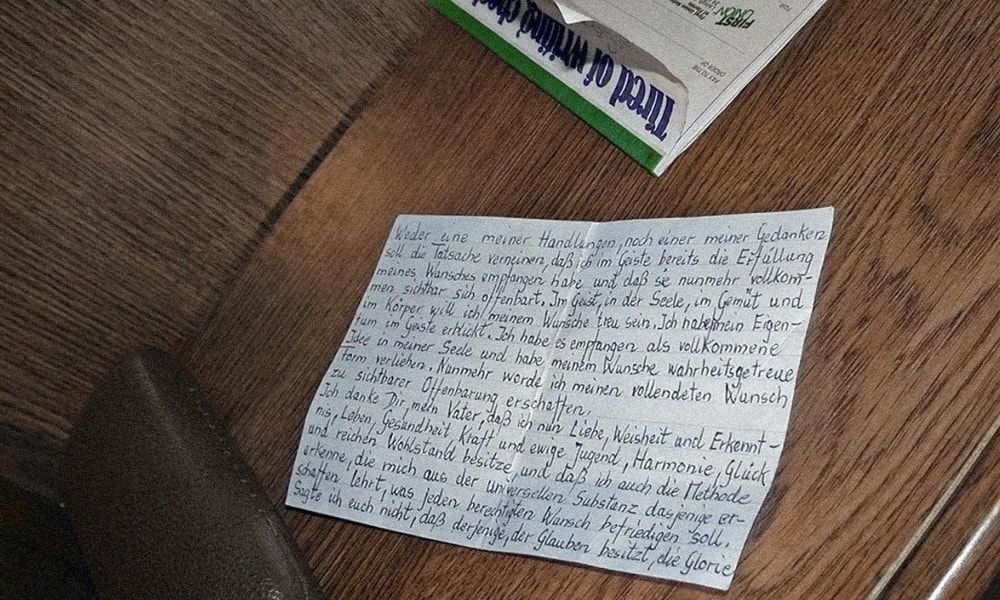 Tired of writing chec
FIRST
UNION
PAY TO THE
ORDER OF
FOR
Weder eine meiner Handlungen, noch einer meiner Gedanken
soll die Tatsache verneinen, daß ich im Geiste bereits die Erfüllung
meines Wunsches empfangen habe und daß sie nunmehr vollkom-
men sichtbar sich offenbart. Im Geist, in der Seele, im Gemüt und
im Körper will ich meinem Wunsche treu sein. Ich habe mein Eigen-
tum im Geiste erblickt. Ich habe es empfangen als vollkommene
Idee in meiner Seele und habe meinem Wunsche wahrheitsgetreue
Form verliehen. Nunmehr worde ich meinen vollendeten Wunsch
zu sichtbarer Offenbarung erschaffen.
Ich danke Dir, mein Vater, daß ich nun Liebe, Weisheit und Erkennt-
nis, Leben, Gesundheit, Kraft und ewige Jugend, Harmonie, Glück
und reichen Wohlstand besitze und daß ich auch die Methode
erkenne, die mich aus der universellen Substanz dasjenige er-
schaffen lehrt, was jeden berechtigten Wunsch befriedigen soll.
Sagte ich euch nicht, daß derjenige, der Glauben besitzt, die Glorie